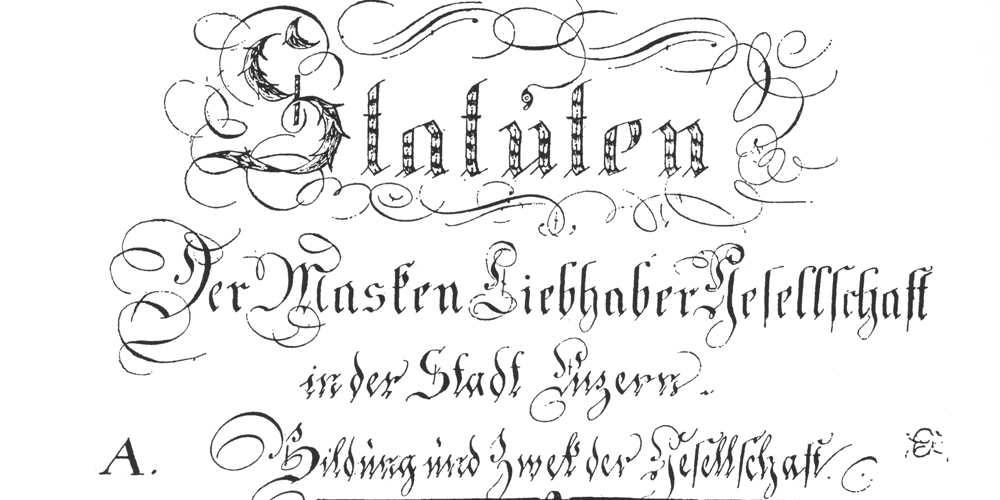 Statuten
Der Masken Liebhaber Gesellschaft
in der Stadt Luzern.
A. Bildung und Zwek der Gesellschaft.